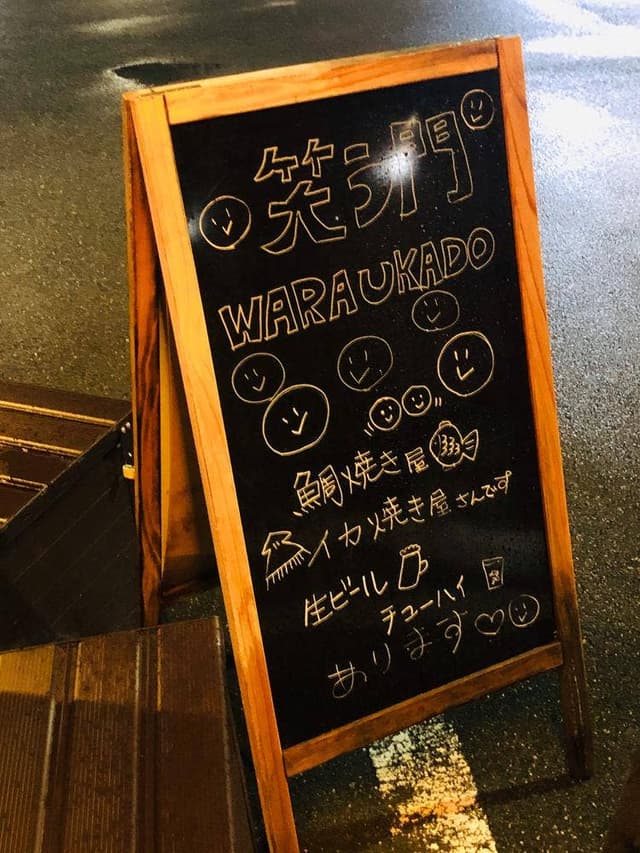 笑う門
WARAUKADO
鯛焼き屋
イカ焼き屋さんです
生ビール
チューハイ
あります